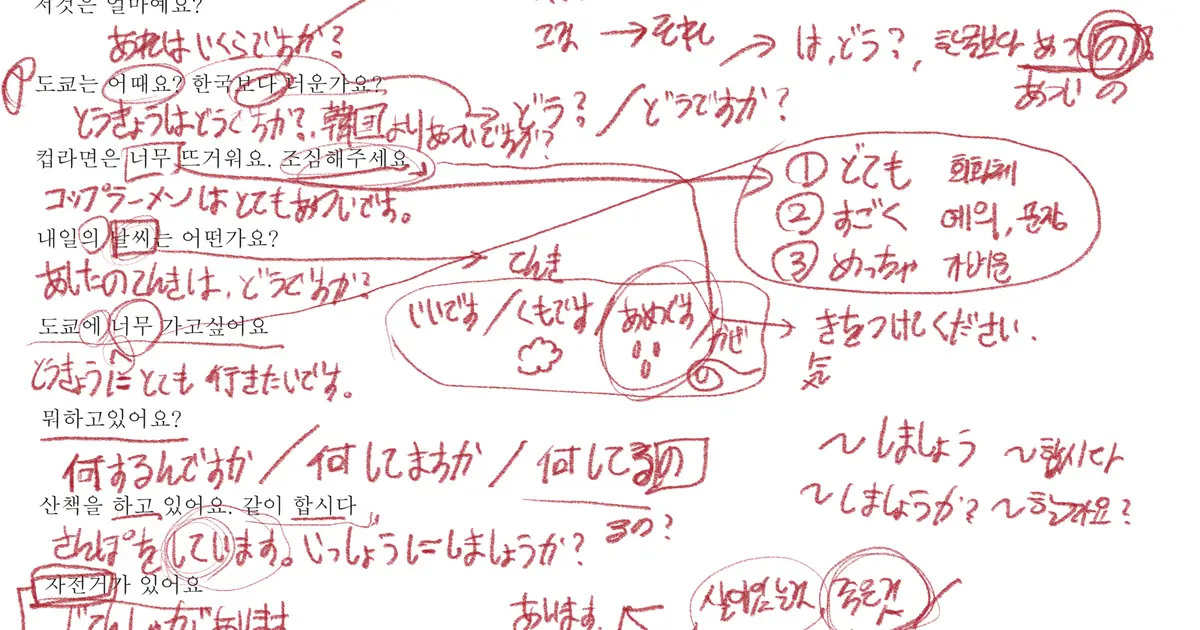 저것은 얼마예요?
あれはいくらですか?
그것 → それ
は,どう?, 한국보다 あついの?
あついの
도쿄는 어때요? 한국보다 더운가요?
とうきょうはどうですか?. 韓国よりあついですか?
→ どう? / どうですか?
컵라면은 너무 뜨거워요. 조심해주세요
コップラーメンはとてもあついです。
① どても 회화체
② すごく 예의, 문장
③ めっちゃ 가벼운
내일의 날씨는 어떤가요?
あしたのてんきは, どうですか?
てんき
いいです / くもです / あめです / かぜ
の
きをつけてください.
気
도쿄에 너무 가고싶어요
とうきょうにとても 行きたいです。
뭐하고있어요?
何するんですか / 何してますか / 何してるの
るの?
~しましょう ~합시다
~しましょうか? ~할까요?
산책을 하고 있어요. 같이 합시다
さんぽをしています。いっしょうにしましょうか?
자전거가 있어요
じてんしゃがあります
あります. ←
살아있는것, 죽은것